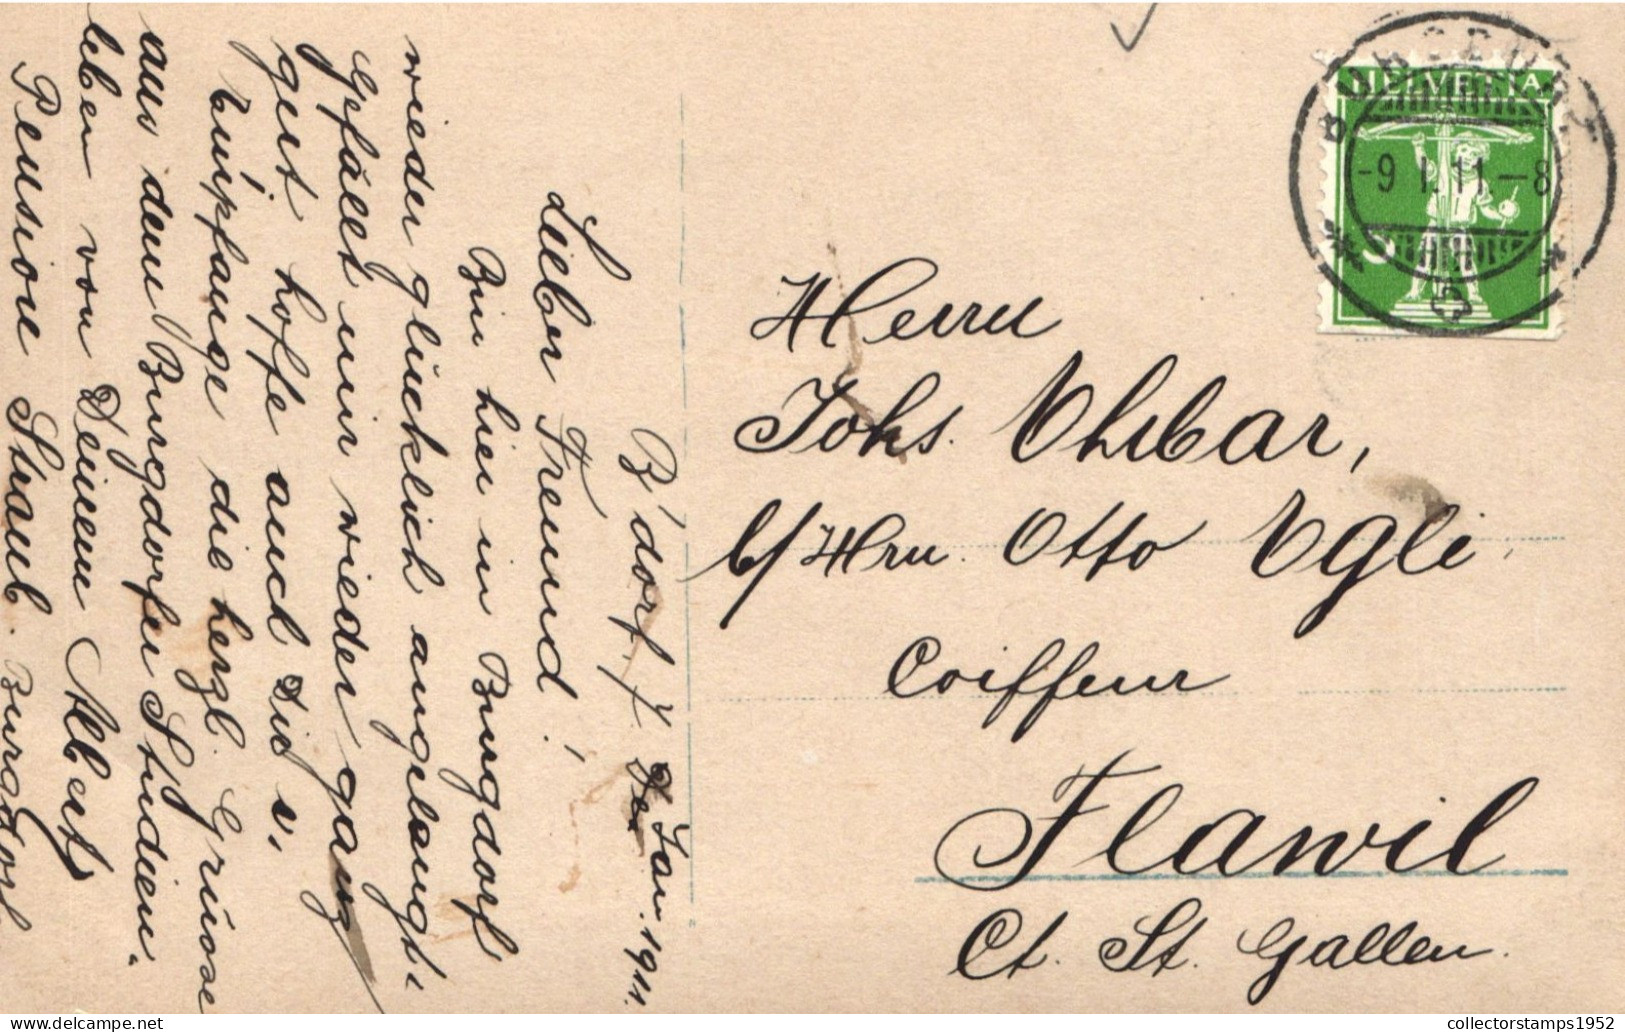 B'dorf, 7. Jan. 1911.
Lieber Freund!
Bin hier in Burgdorf
wieder glücklich angelangt.
Gefällt mir wieder ganz
gut hoffe auch Dir
Empfange die herzl. Grüsse
aus dem Burgdorfer Studien-
leben von Deinem Albert
Pension Straub. Burgdorf
HELVETIA
5
BURGDORF
-9 I.11-8
Herrn
Johs.
b/Hrn. Otto Egli,
Coiffeur
Flawil
Ct. St. Gallen.
collectorstamps1952